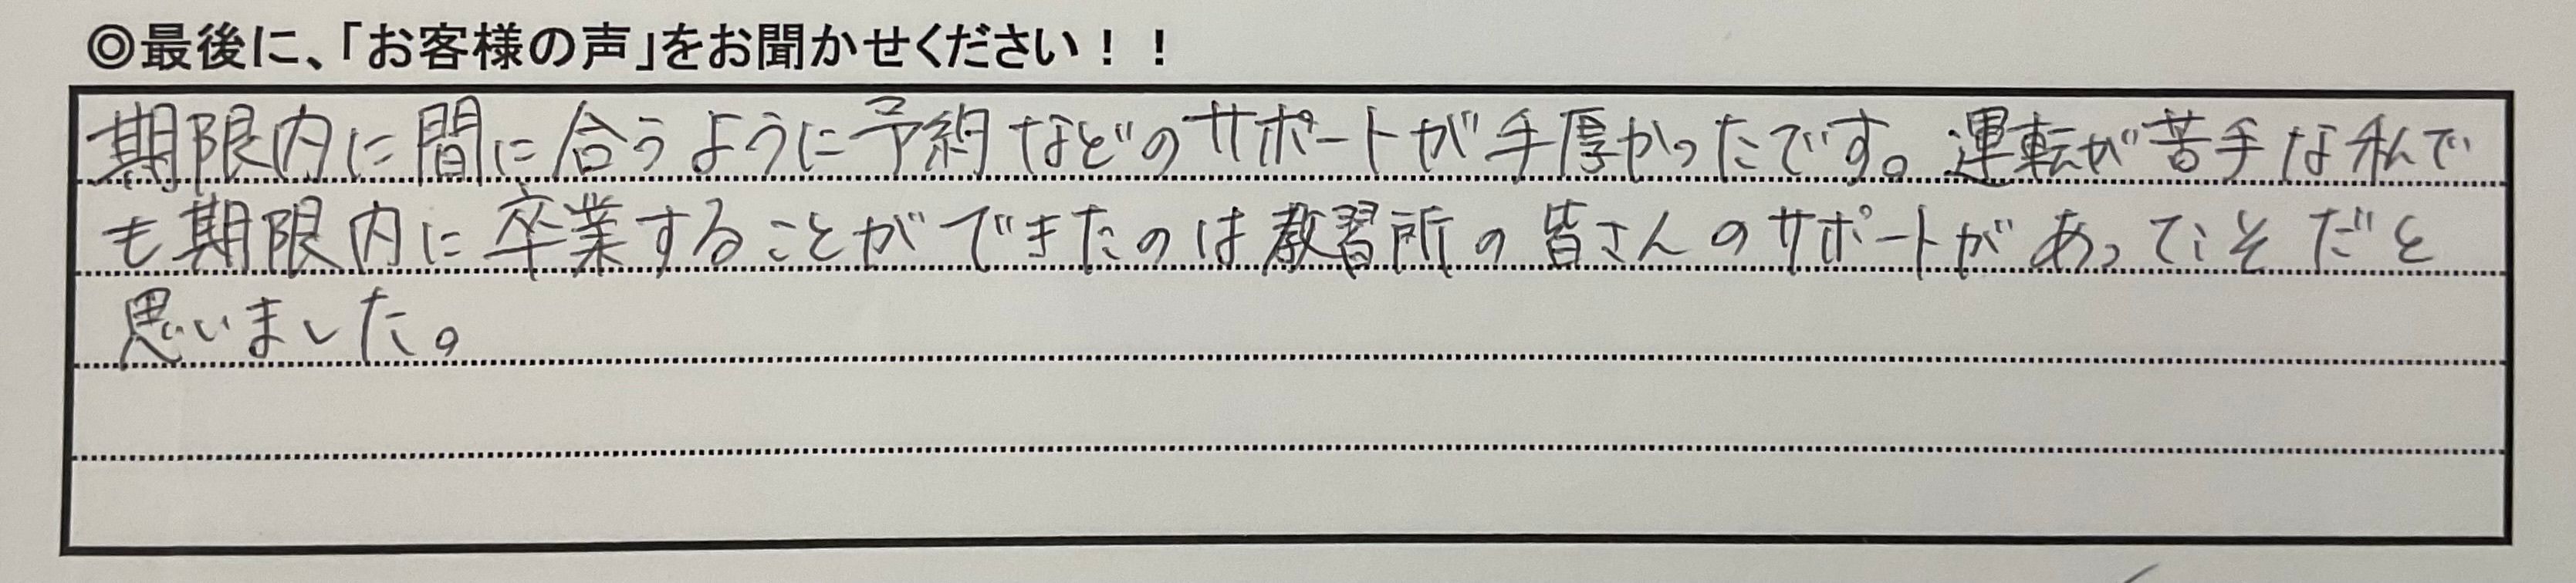 ◎最後に、「お客様の声」をお聞かせください！！
期限内に間に合うように予約などのサポートが手厚かったです。運転が苦手な私で
も期限内に卒業することができたのは教習所の皆さんのサポートがあってこそだと
思いました。